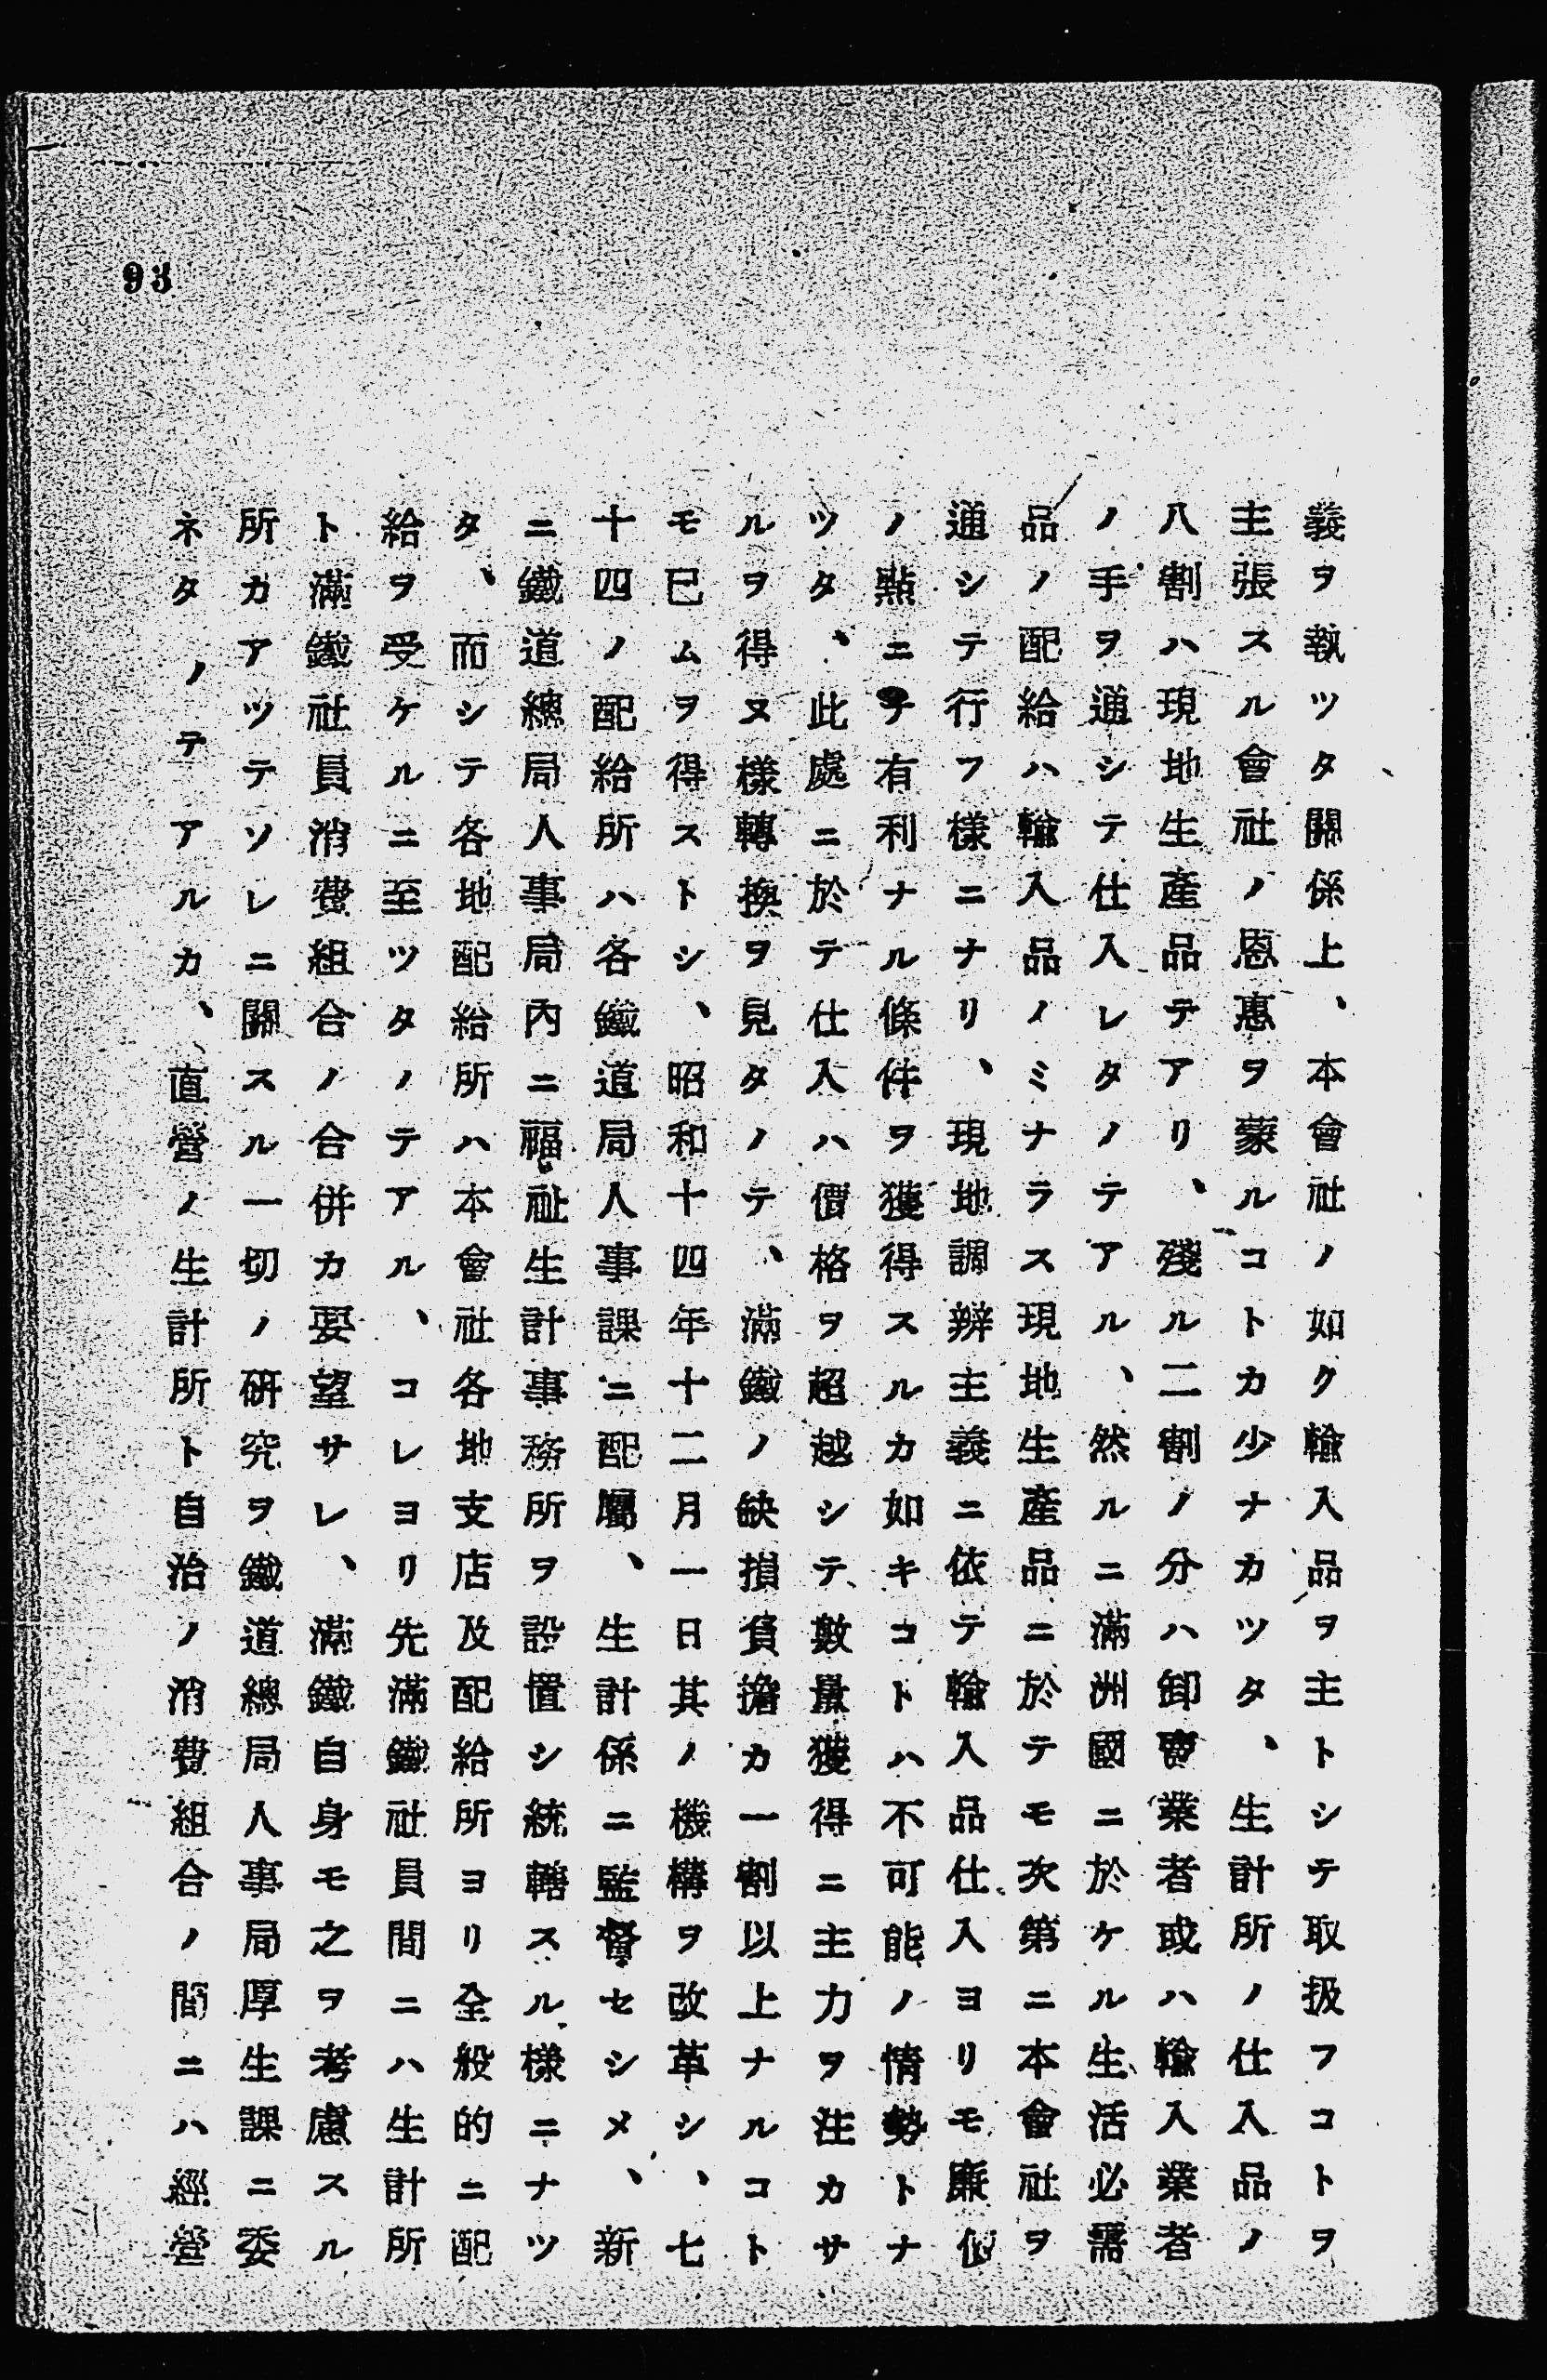 93
義ヲ執ツタ關係上、本會社ノ如ク輸入品ヲ主トシテ取扱フコトヲ
主張スル會社ノ恩惠ヲ蒙ルコトカ少ナカツタ、生計所ノ仕入品ノ
八割ハ現地生產品テアリ、殘ル二割ノ分ハ卸賣業者或ハ輸入業者
ノ手ヲ通シテ仕入レタノテアル、然ルニ滿洲國ニ於ケル生活必需
品ノ配給ハ輸入品ノミナラス現地生產品ニ於テモ次第ニ本會社ヲ
通シテ行フ樣ニナリ、現地調辨主義ニ依テ輸入品仕入ヨリモ廉價
ノ點ニ有利ナル條件ヲ獲得スルカ如キコトハ不可能ノ情勢トナ
ツタ、此處ニ於テ仕入ハ價格ヲ超越シテ數量獲得ニ主力ヲ注カサ
ルヲ得ヌ樣轉換ヲ見タノテ、滿鐵ノ缺損負擔カ一割以上ナルコト
モ巳ムヲ得ストシ、昭和十四年十二月一日其ノ機構ヲ改革シ、七
十四ノ配給所ハ各鐵道局人事課ニ配屬、生計係ニ監督セシメ、新
ニ鐵道總局人事局內ニ福祉生計事務所ヲ設置シ統轄スル樣ニナツ
タ、而シテ各地配給所ハ本會社各地支店及配給所ヨリ全般的ニ配
給ヲ受ケルニ至ツタノテアル、コレヨリ先滿鐵社員間ニハ生計所
ト滿鐵社員消費組合ノ合併カ要望サレ、滿鐵自身モ之ヲ考慮スル
所カアツテソレニ關スル一切ノ研究ヲ鐵道總局人事局厚生課ニ委
ネタノテアルカ、直營ノ生計所ト自治ノ消費組合ノ間ニハ經營